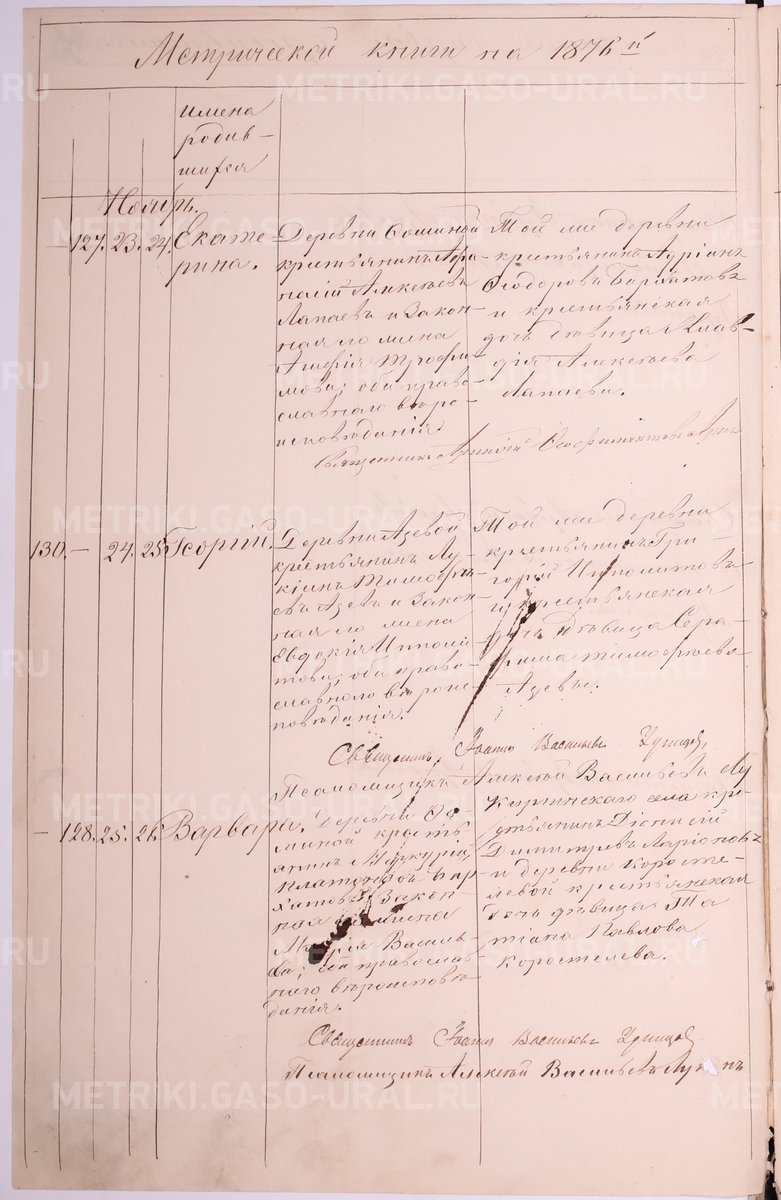 Метрической книги на 1876 й
имена
родив-
шихся
Ноябрь.
127. 23. 24. Екате-
рина.
Деревни Сосниной
крестьянинъ Афа-
насій Алексѣевъ
Лапаевъ и закон-
ная его жена
Агафія Трофи-
мова; оба право-
славнаго вѣро-
исповѣданія.
Той же деревни
крестьянинъ Адріанъ
Ѳеодоровъ Бархатовъ
и крестьянская
дочь дѣвица Клав-
дія Алексѣева
Лапаева.
Священникъ
130. — 24. 25. Георгій.
Деревни Азевой
крестьянинъ Лу-
кіянъ Тимофѣ-
евъ Азевъ и закон-
ная его жена
Евдокія Ипполи-
това; оба право-
славнаго вѣроис-
повѣданія.
Той же деревни
крестьянинъ Гри-
горій Ипполитовъ
и крестьянская
дочь дѣвица Сера-
фима Тимофѣева
Азевы.
Священникъ Іоаннъ Васильевъ
Псаломщикъ Алексѣй Васильевъ
— 128. 25. 26. Варвара.
Деревни
крестья-
янинъ Меркурій
Платоновъ Бар-
хатовъ и закон-
ная его жена
Марія Василь-
ева; оба православ-
наго вѣроисповѣ-
данія.
села кре-
стьянинъ Діонисій
Димитріевъ Ларіоновъ
и деревни Коросте-
левой крестьянская
дочь дѣвица Та-
тіана Павлова
Коростелева.
Священникъ Іоаннъ Васильевъ
Псаломщикъ Алексѣй Васильевъ
METRIKI.GASO-URAL.RU